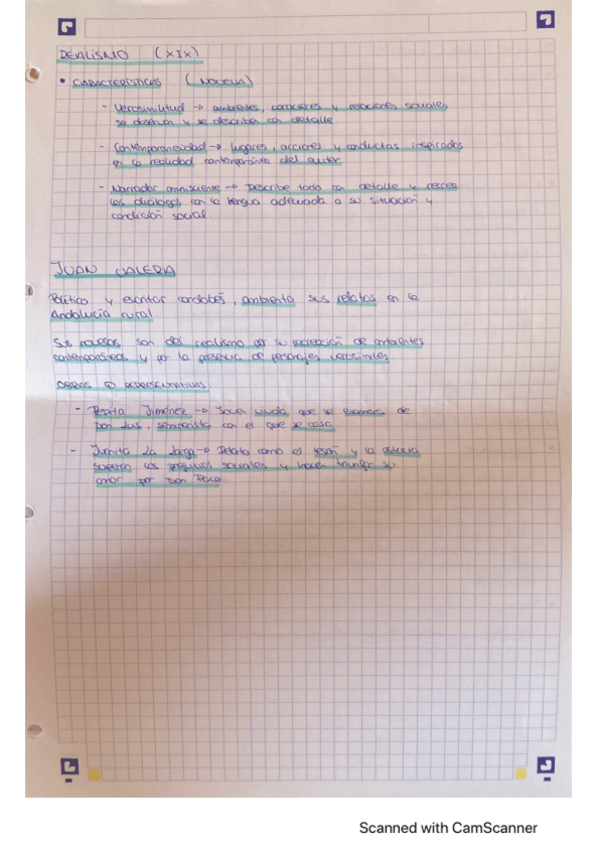 REALISMO (XIX)
• CARACTERÍSTICAS (NOVELA)
- Verosimilitud → ambientes, caracteres y relaciones sociales
se observan y se describen con detalle
- Contemporaneidad → lugares, acciones y conductas inspirados
en la realidad contemporánea del autor
- Narrador omnisciente → Describe todo con detalle y recrea
los diálogos con la lengua adecuada a su situación y
condición social
JUAN VALERA
Político y escritor cordobés, ambienta sus relatos en la
Andalucía rural
Sus novelas son del realismo por su recreación de ambientes
contemporáneos y por la presencia de personajes verosímiles
OBRAS REPRESENTATIVAS:
- Pepita Jiménez → Joven viuda que se enamora de
Don Luis, seminarista con el que se casa
- Juanita La Larga → Relata como el tesón y la astucia
superan los prejuicios sociales y hacen triunfar su
amor por Don Paco
Scanned with CamScanner